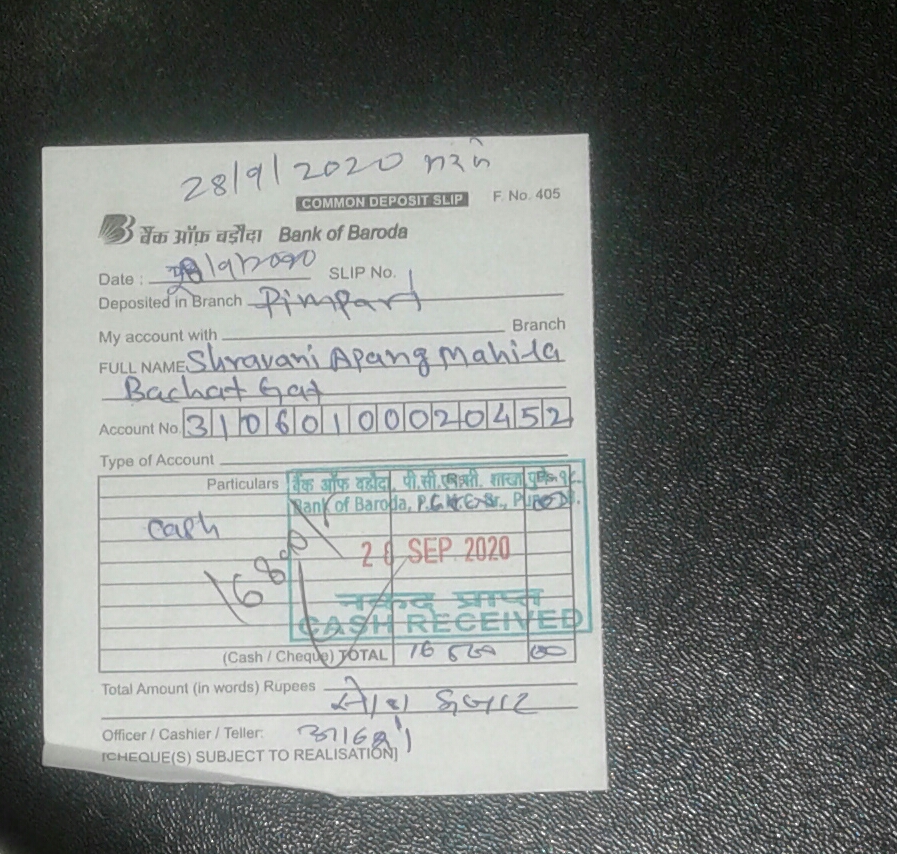 28/9/2020
COMMON DEPOSIT SLIP F. No. 405
बैंक ऑफ़ बड़ौदा Bank of Baroda
Date : 28/9/2020 SLIP No.
Deposited in Branch Pimpari
My account with Branch
FULL NAME Shravani Apang Mahila
Bachat Gat
Account No. 31060100020452
Type of Account
Particulars
बैंक ऑफ बड़ौदा, पी.सी. शाखा
Bank of Baroda,
Cash
28 SEP 2020
नकद प्राप्त
CASH RECEIVED
(Cash / Cheque) TOTAL 00
Total Amount (in words) Rupees
Officer / Cashier / Teller:
[CHEQUE(S) SUBJECT TO REALISATION]